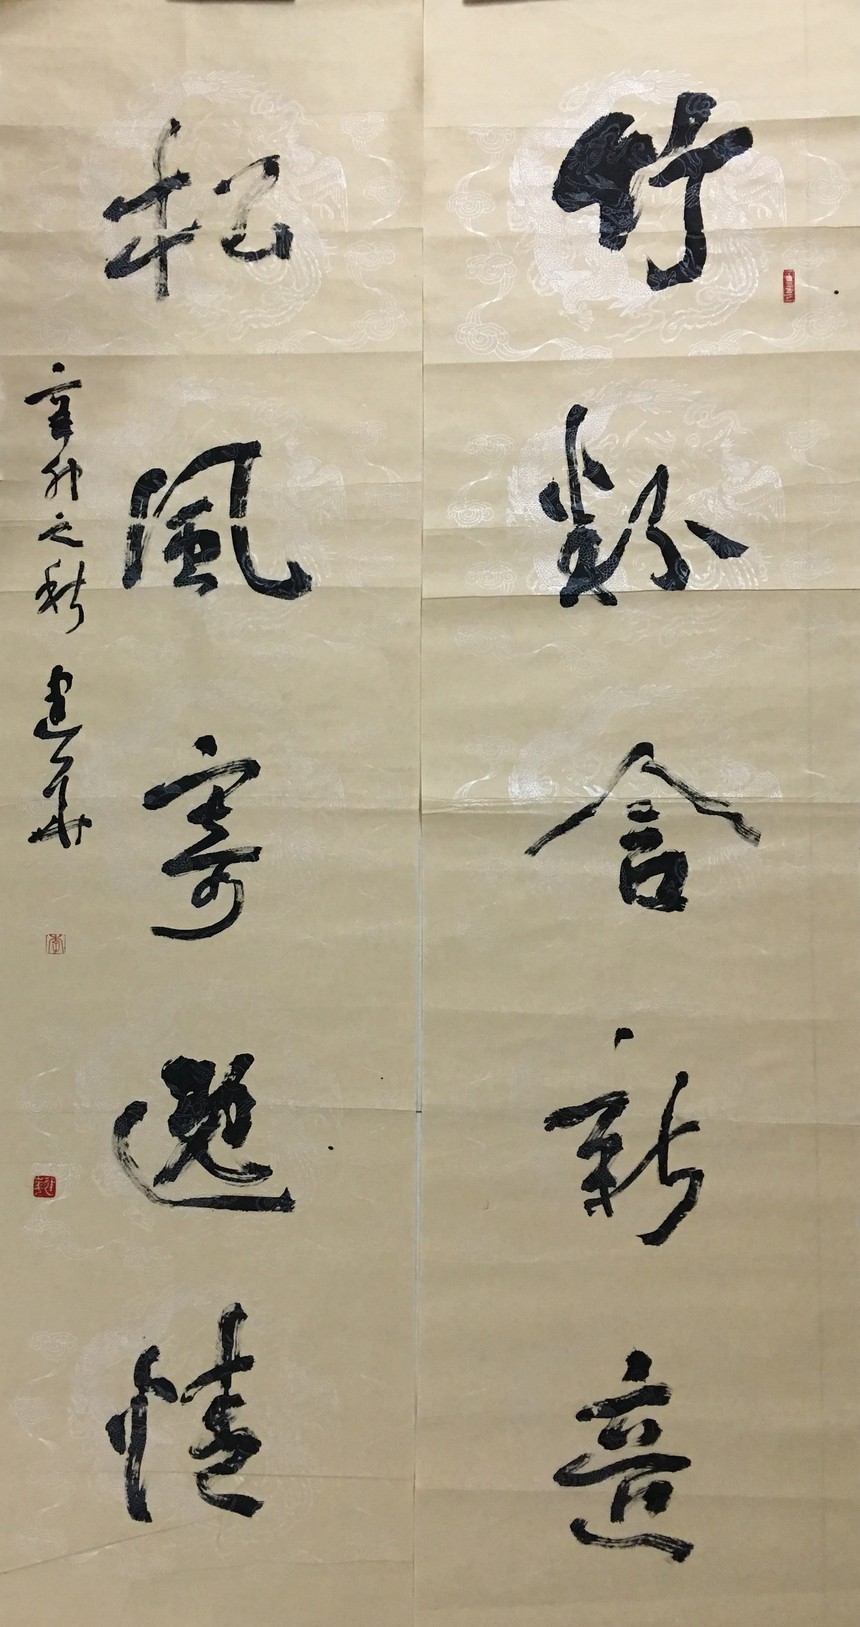 竹含新意
松風寄逸情
辛卯之秋 建華